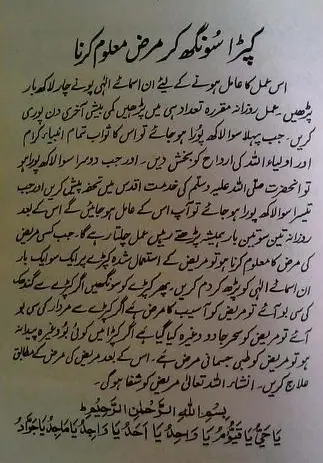 کپڑا سونگھ کر مرض معلوم کرنا
اس عمل کا عامل ہونے کے لیئے ان اسمائے الٰہی پونے چار لاکھ بار
پڑھیں۔ عمل روزانہ مقررہ تعداد ہی میں پڑھیں کمی بیشی آخری دن پوری
کریں۔ جب پہلا سوا لاکھ پورا ہو جائے تو اس کا ثواب تمام انبیاء کرام
اور اولیاء اللہ کی ارواح کو بخش دیں۔ اور جب دوسرا سوا لاکھ پورا ہو
تو آنحضرت صلی اللہ علیہ وسلم کی خدمت اقدس میں تحفہ پیش کریں اور جب
تیسرا سوا لاکھ پورا ہو جائے تو آپ اس کے عامل ہو جائیں گے اس کے بعد
روزانہ تین سو تین بار ہمیشہ پڑھتے رہیں عمل چلتا رہے گا۔ جب کسی مریض
کی مرض کا معلوم کرنا ہو تو مریض کے استعمال شدہ کپڑے پر ایک سو ایک بار
ان اسمائے الٰہی کو پڑھ کر دم کریں۔ پھر کپڑے کو سونگھیں اگر کپڑے سے گندھک
کی سی بو آئے تو مریض کو آسیب کا مرض ہے اگر کپڑے سے مردار کی سی بو
آئے تو مریض کو سحر جادو وغیرہ کیا گیا ہے اگر کپڑا میں کوئی بو وغیرہ پیدا نہ
ہو تو مریض کو طبی جسمانی مرض ہے۔ اس کے بعد مریض کی مرض کے مطابق
علاج کریں۔ انشاء اللہ تعالیٰ مریض کو شفا ہو گی۔
بِسْمِ اللّٰهِ الرَّحْمٰنِ الرَّحِيْمِ
يَا حَيُّ يَا قَيُّوْمُ يَا وَاحِدُ يَا اَحَدُ يَا وَاجِدُ يَا مَاجِدُ يَا جَوَّادُ